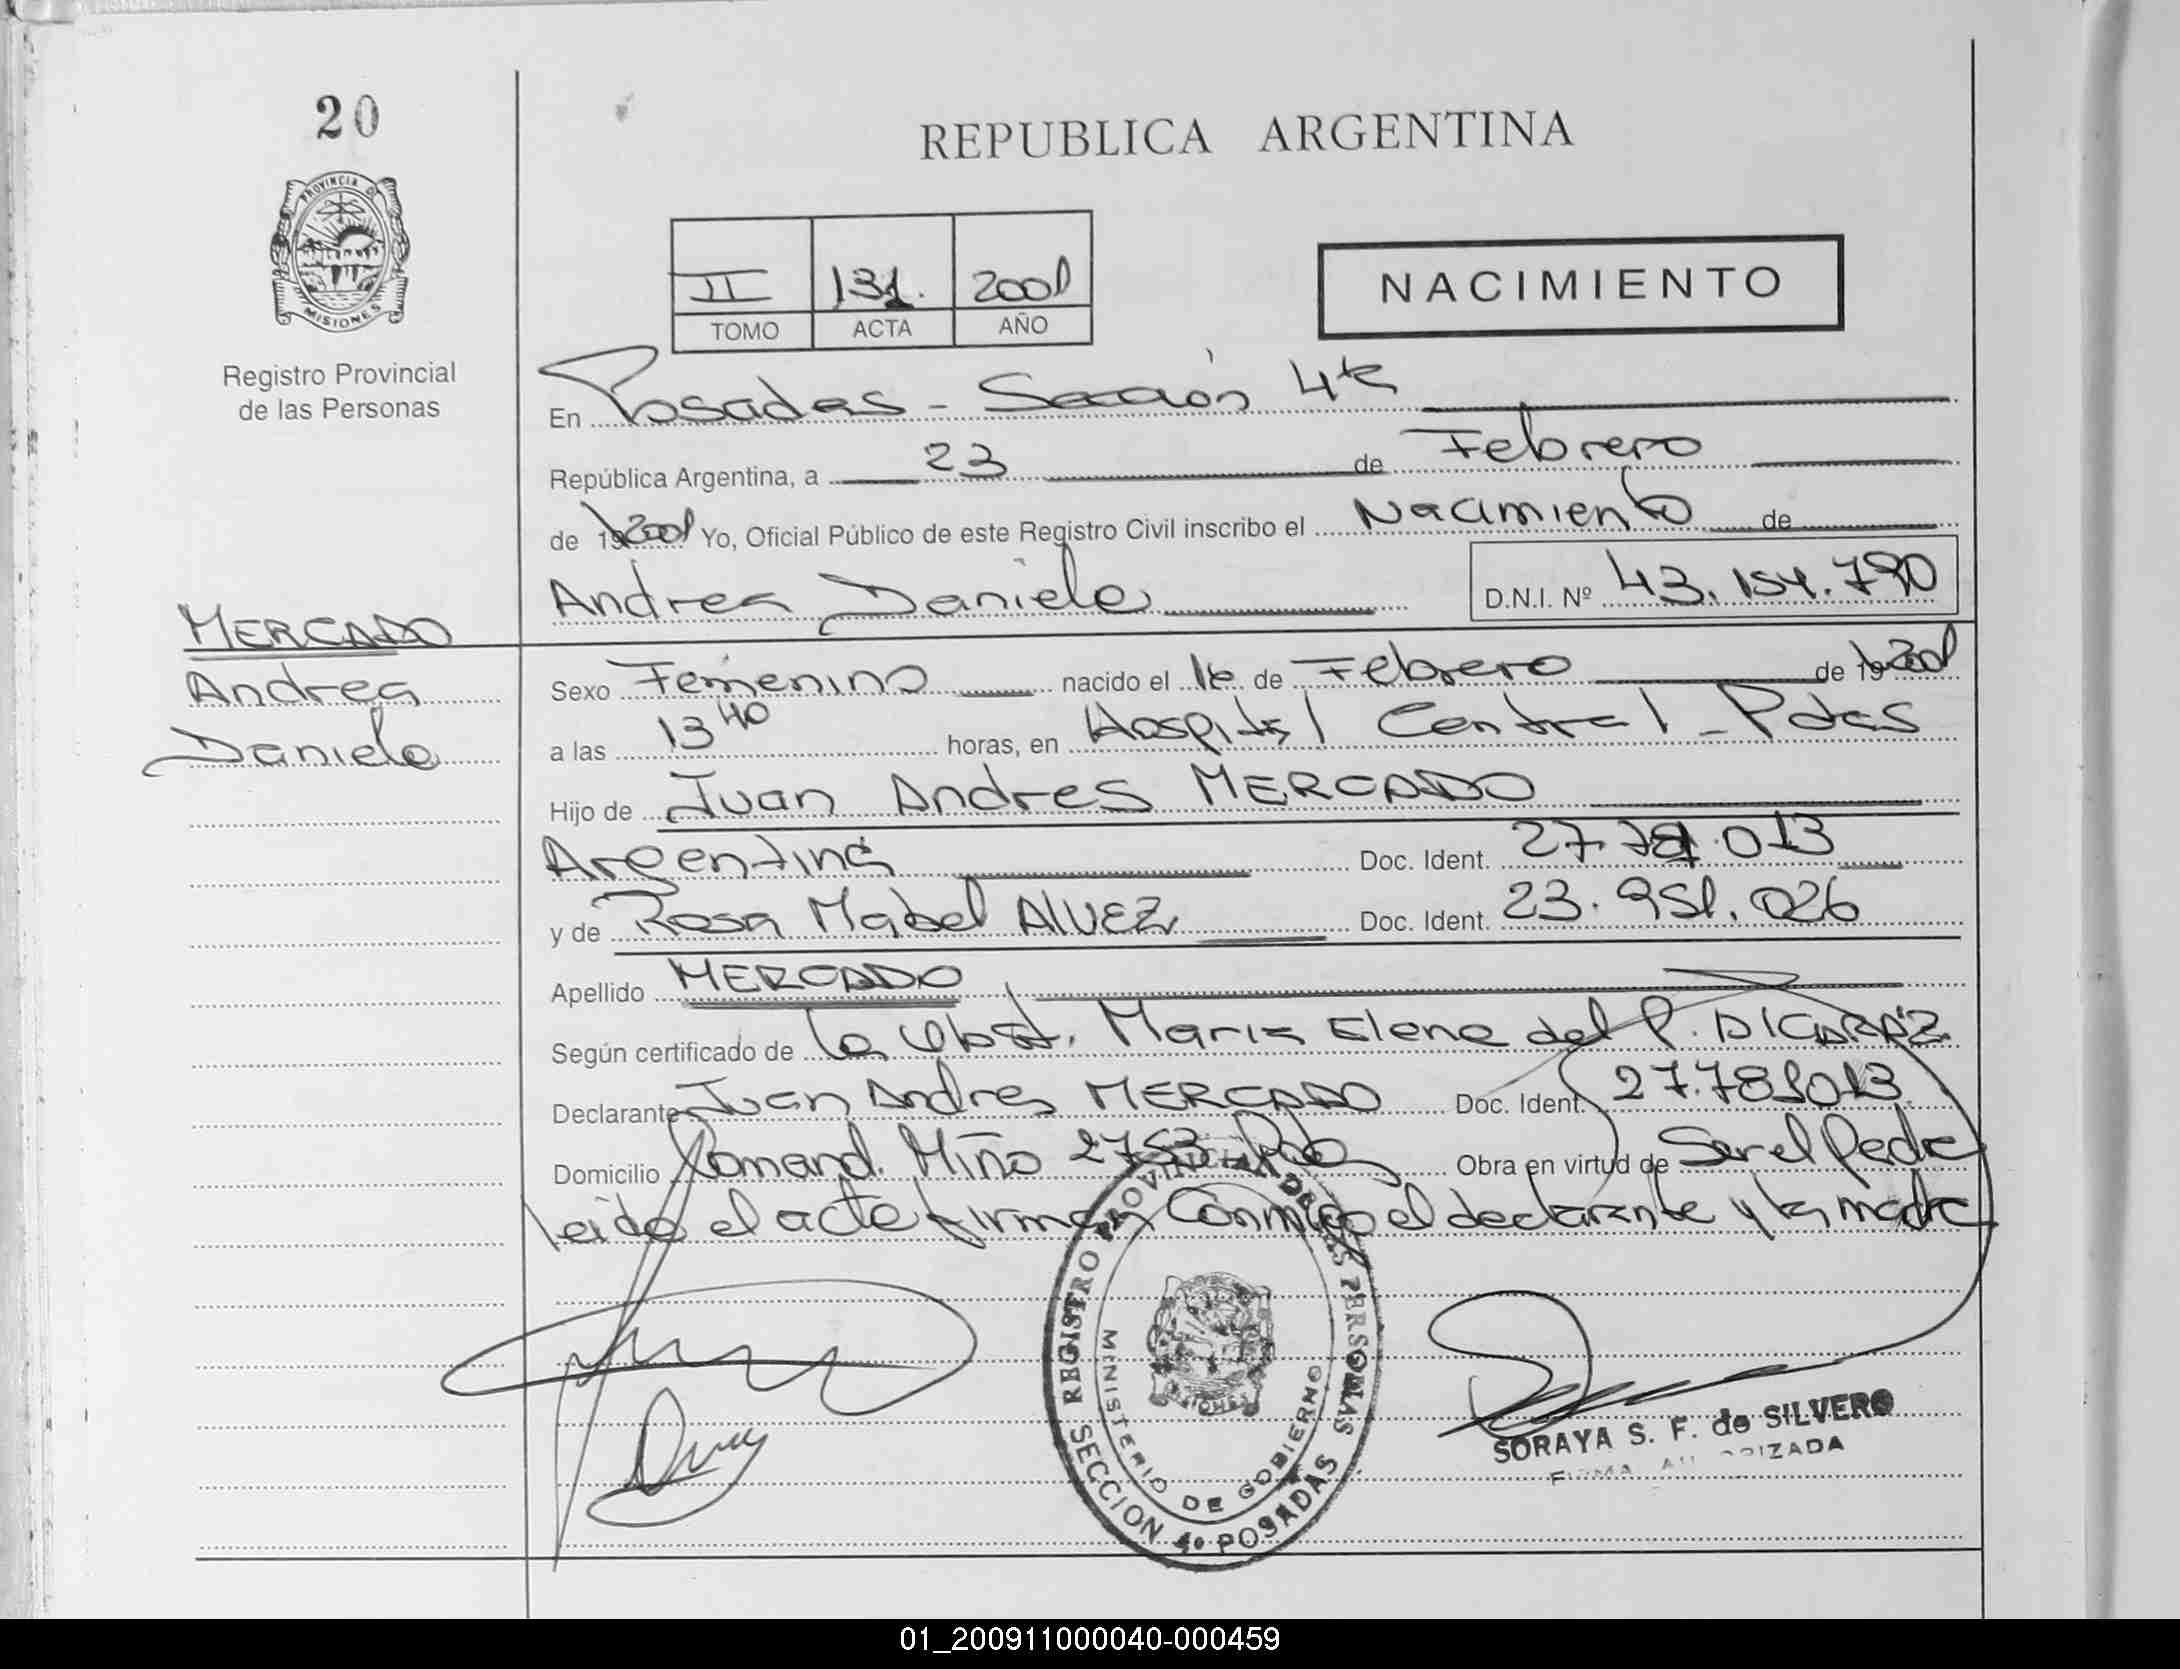 20
REPUBLICA ARGENTINA
PROVINCIA DE
MISIONES
Registro Provincial
de las Personas
II 131. 2001
TOMO ACTA AÑO
NACIMIENTO
En Posadas - Sección 4ta
República Argentina, a 23 de Febrero
de 2001 Yo, Oficial Público de este Registro Civil inscribo el Nacimiento de
Andrea Daniela D.N.I. Nº 43.154.790
MERCADO
Andrea
Daniela
Sexo Femenino nacido el 16 de Febrero de 2001
a las 13 40 horas, en Hospital Central - Pdas
Hijo de Juan Andres MERCADO
Argentina Doc. Ident. 27.781.013
y de Rosa Mabel ALVEZ Doc. Ident. 23.951.026
Apellido MERCADO
Según certificado de la Obst. Maria Elena del P.
Declarante Juan Andres MERCADO Doc. Ident. 27.781013
Domicilio Comand. Miño 2753 Obra en virtud de Ser el Padre
leido el acta firman Conmigo el declarante y la madre
REGISTRO PROVINCIAL DE LAS PERSONAS
MINISTERIO DE GOBIERNO
SECCION 4º POSADAS
SORAYA S. F. de SILVERO
FIRMA AUTORIZADA
01_200911000040-000459